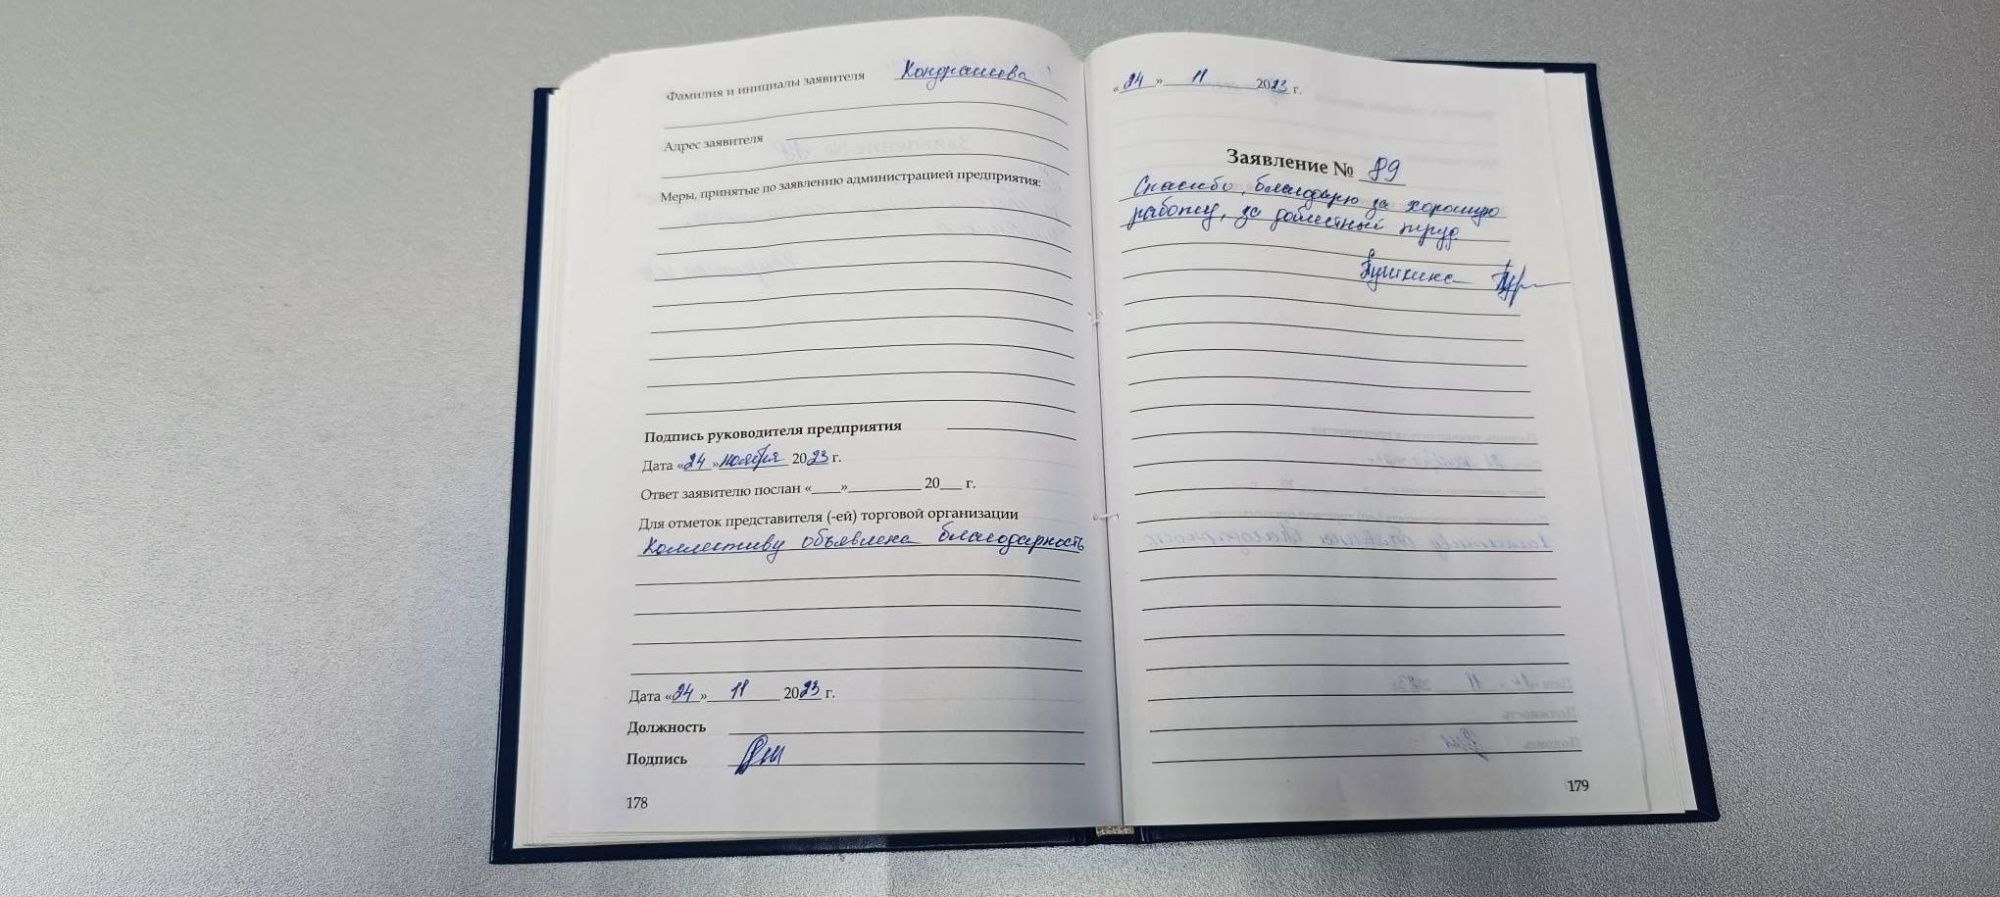 Фамилия и инициалы заявителя Кондрашева
Адрес заявителя
Меры, принятые по заявлению администрацией предприятия:
Подпись руководителя предприятия
Дата «24» ноября 2023 г.
Ответ заявителю послан «____»__________ 20___ г.
Для отметок представителя (-ей) торговой организации
Коллективу объявлена благодарность
Дата «24» 11 2023 г.
Должность
Подпись
178
«24» 11 2023 г.
Заявление № 89
Спасибо, благодарю за хорошую
работу, за доблестный труд.
179